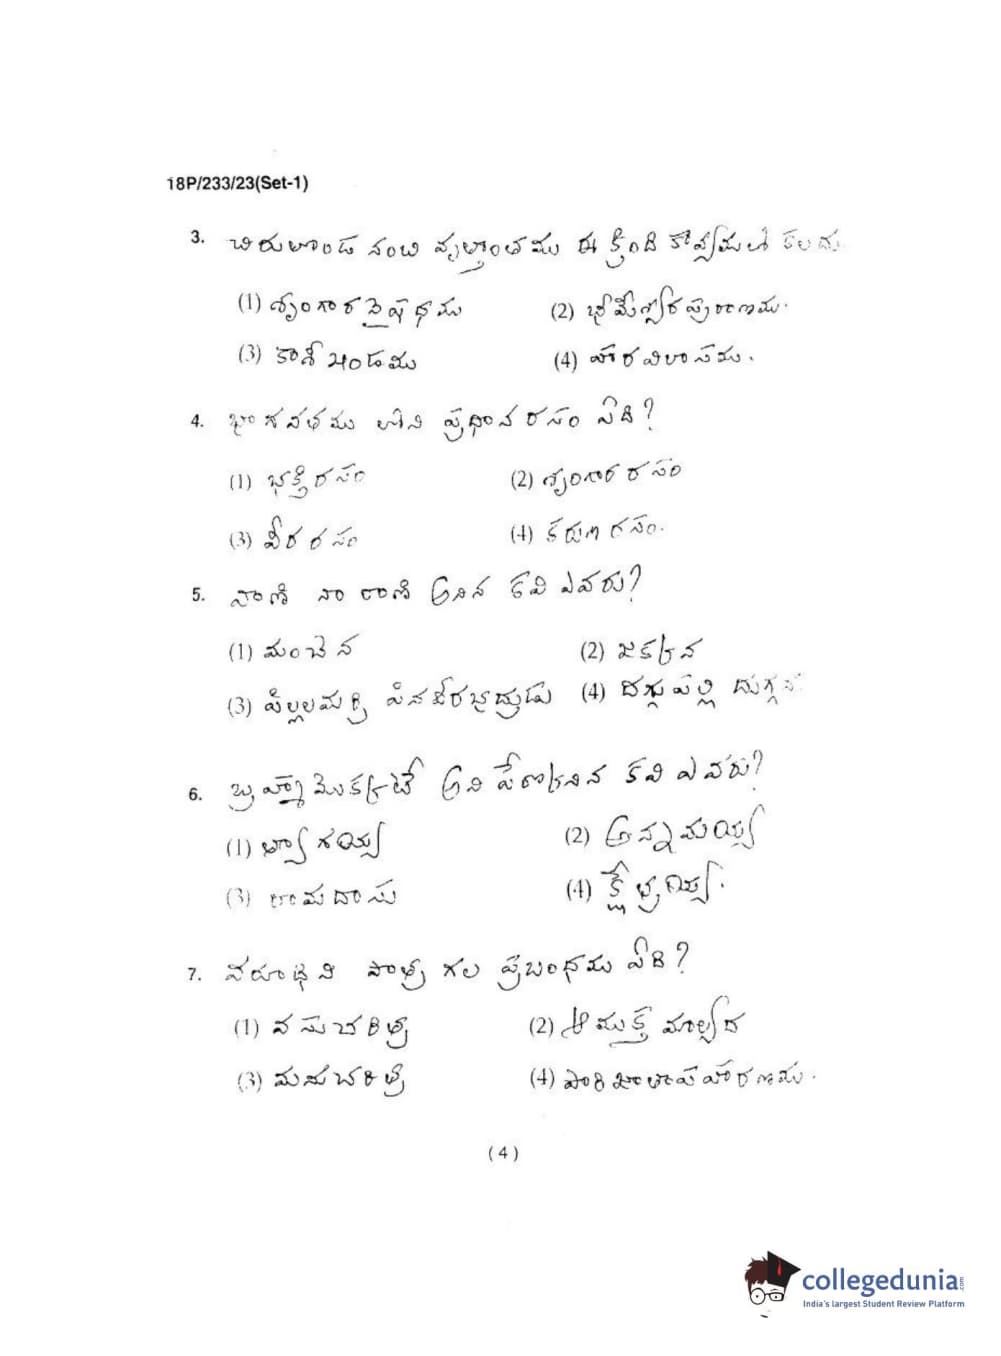 18P/233/23(Set-1)
3. చిరుతొండ నంబి వృత్తాంతము ఈ క్రింది కావ్యములో కలదు
(1) శృంగారనైషధము (2) భీమేశ్వరపురాణము.
(3) కాశీఖండము (4) హరవిలాసము.
4. భాగవతము లోని ప్రధాన రసం ఏది?
(1) భక్తిరసం (2) శృంగార రసం
(3) వీర రసం (4) కరుణ రసం.
5. వాణి నా రాణి అనిన కవి ఎవరు?
(1) మంచెన (2) జక్కన
(3) పిల్లలమర్రి పినవీరభద్రుడు (4) దగ్గుపల్లి దుగ్గన
6. బ్రహ్మామొకక్కటే అని పేర్కొనిన కవి ఎవరు?
(1) త్యాగయ్య (2) అన్నమయ్య
(3) రామదాసు (4) క్షేత్రయ్య.
7. వరూధిని పాత్ర గల ప్రబంధము ఏది?
(1) వసుచరిత్ర (2) ఆముక్త మాల్యద
(3) మనుచరిత్ర (4) పారిజాతాపహరణము.
(4)
collegedunia.com
India's largest Student Review Platform